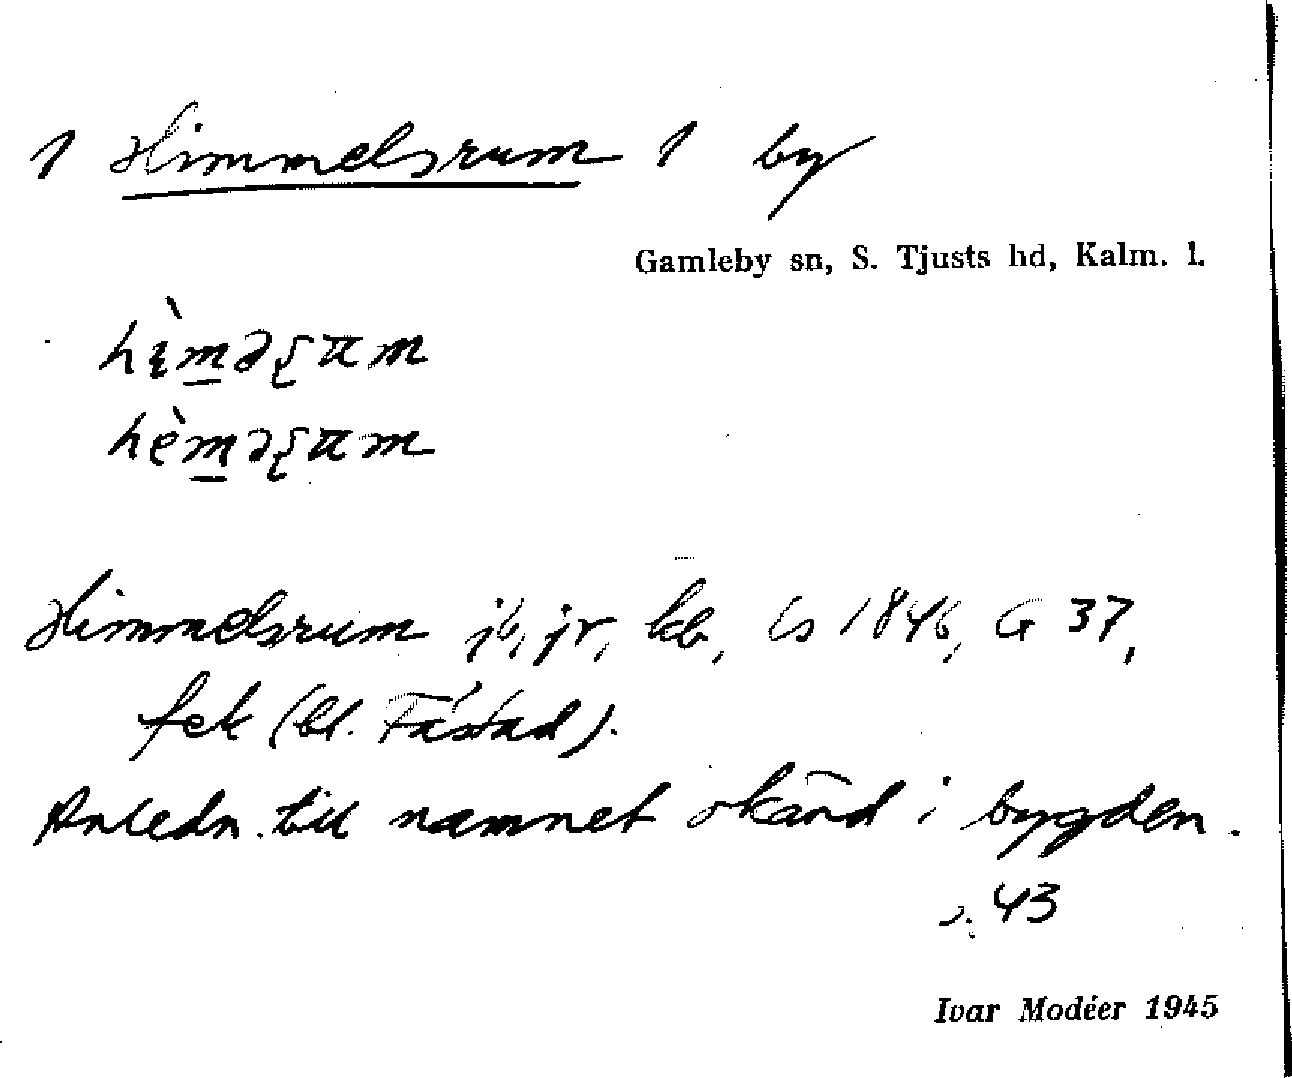 1 Himmelsrum 1 by
Gamleby sn, S. Tjusts hd, Kalm. l.
Himmelsrum jb, jr, kb, Gs 1846, G 37,
fek (bl. Fåstad).
Anledn. till namnet okänd i bygden.
s. 43
Ivar Modéer 1945